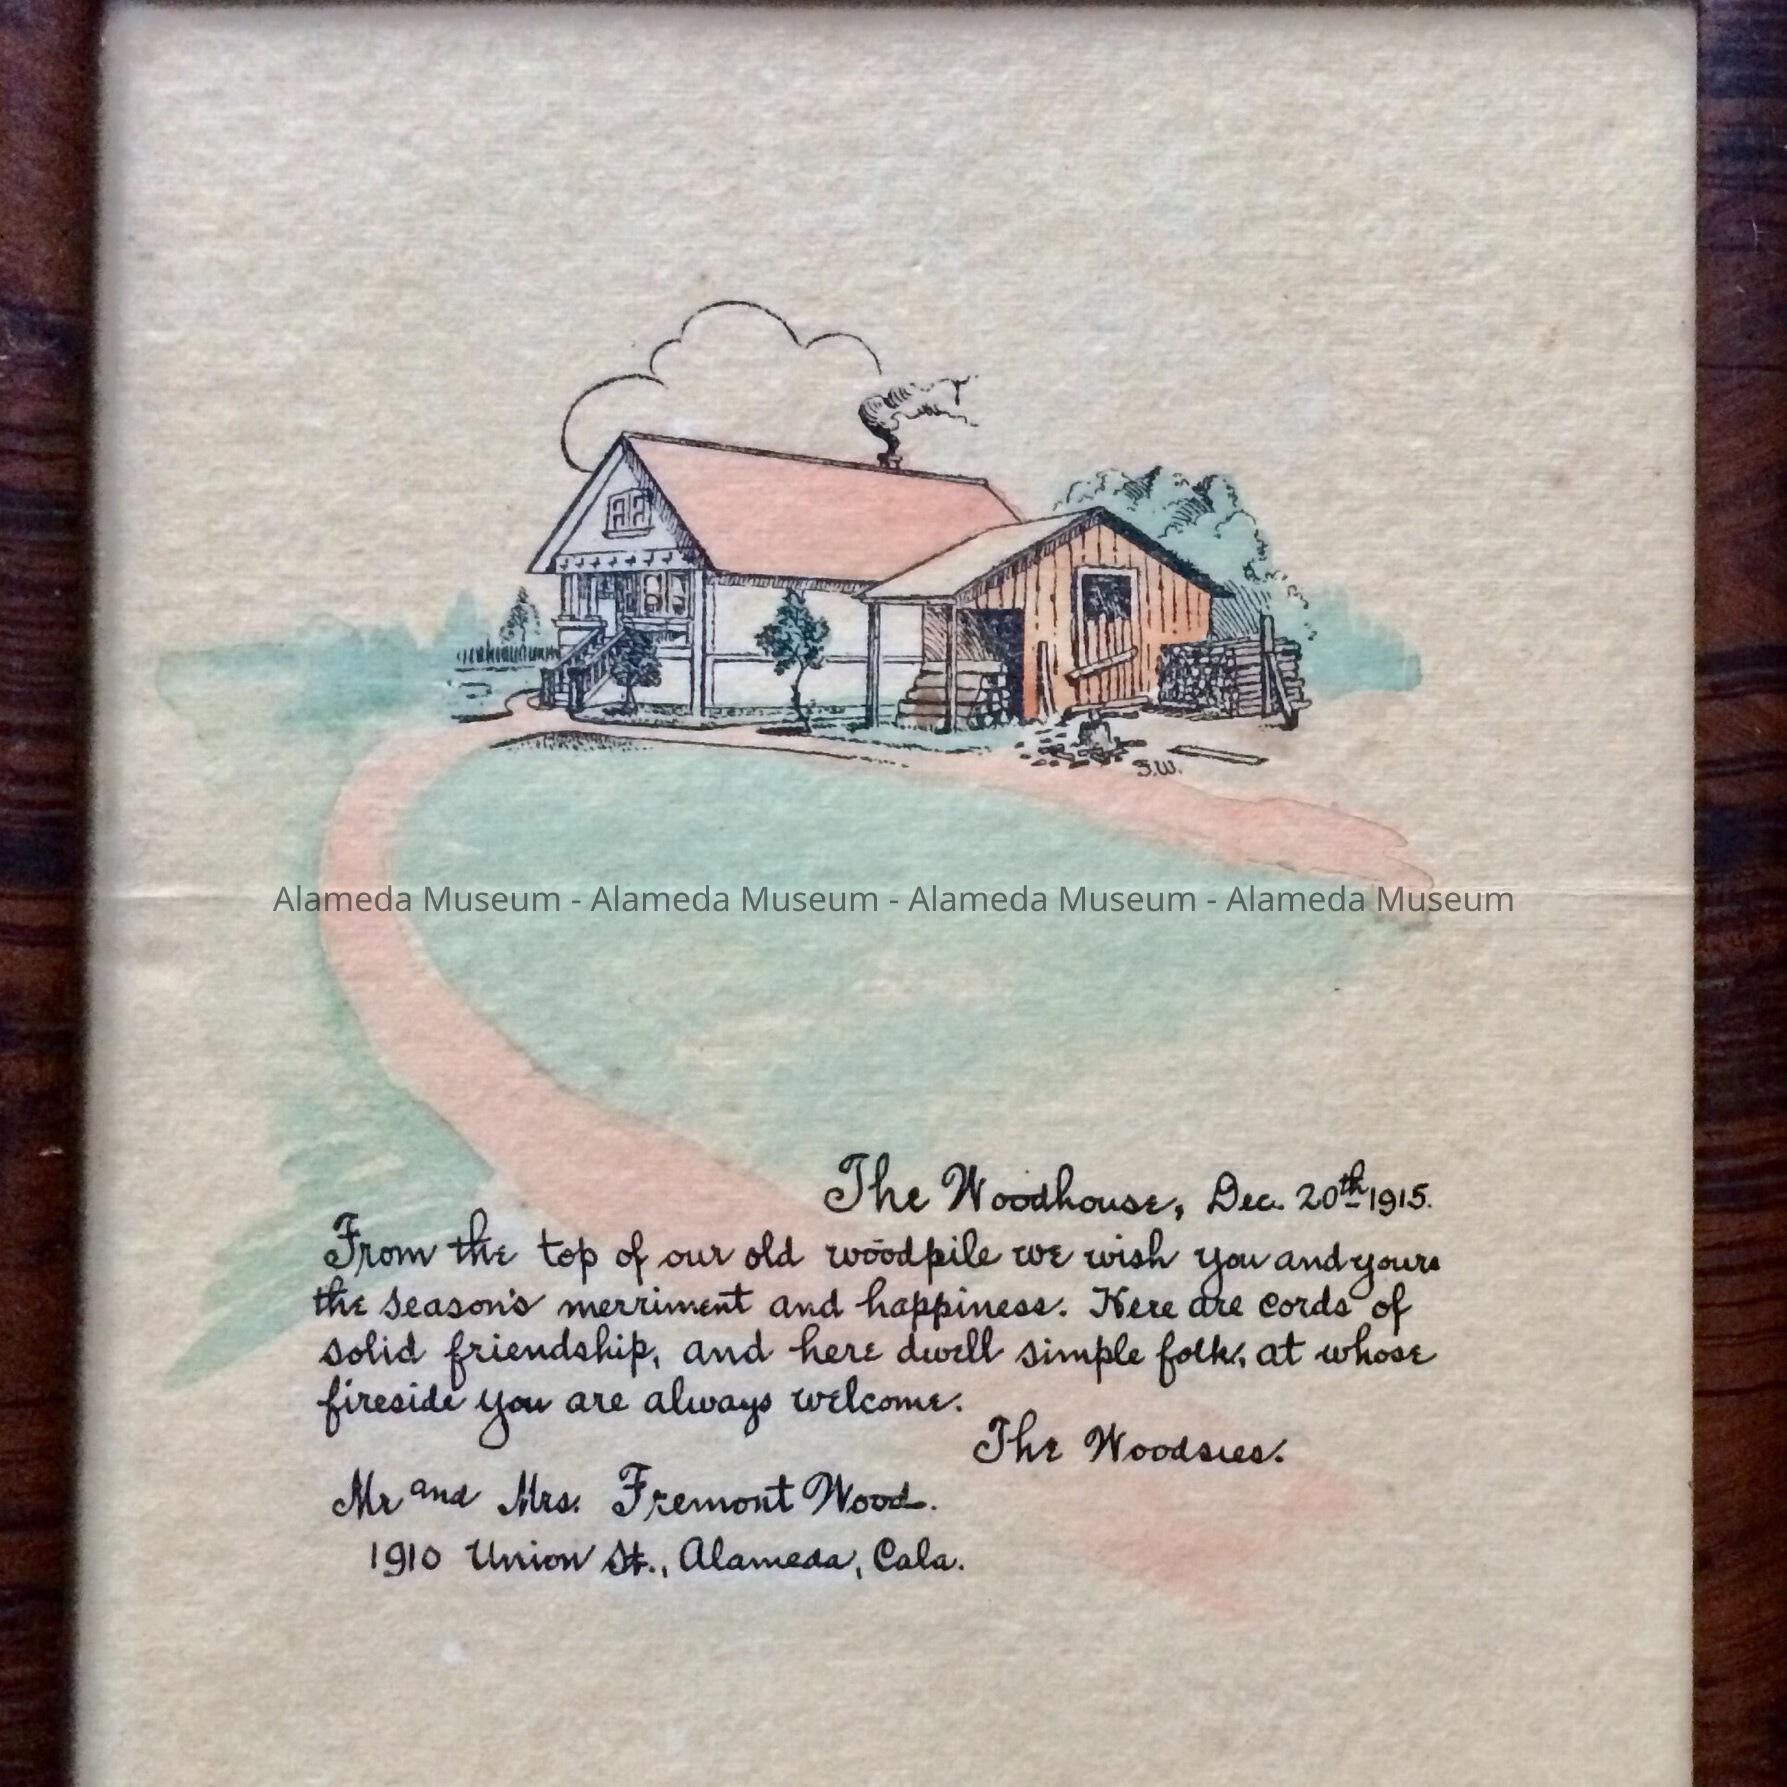 S.W.
Alameda Museum - Alameda Museum - Alameda Museum - Alameda Museum
The Woodhouse, Dec. 20th 1915.
From the top of our old woodpile we wish you and yours
the season's merriment and happiness. Here are cords of
solid friendship, and here dwell simple folk, at whose
fireside you are always welcome.
The Woodsies.
Mr and Mrs. Fremont Wood.
1910 Union St., Alameda, Cala.